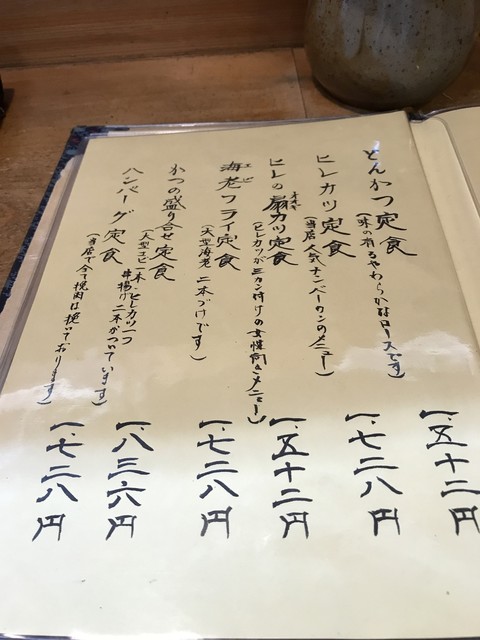 とんかつ定食
(味の有るやわらかなロースです)
一.五十二円
ヒレカツ定食
(当店人気ナンバーワンのメニュー)
一.七二八円
ヒレの扇カツ定食
(ヒレカツが三カン付けの女性向きメニュー)
一.五十二円
エビ
海老フライ定食
(大型海老二本づけです)
一.七二八円
かつの盛り合せ定食
(大型エビ一本.ヒレカツ一つ
串揚げ二本がついています)
一.八三六円
ハンバーグ定食
(当店で全て挽肉は挽いております)
一.七二八円